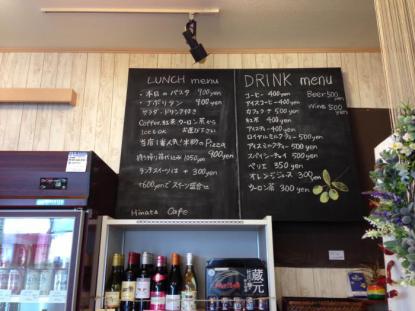 LUNCH menu
・本日のパスタ 900yen
・ナポリタン 900yen
サラダ・ドリンク付き
Coffee, 紅茶, ウーロン茶から
Ice もOK お選び下さい
当店1番人気!米粉のPizza
900yen
持ち帰り箱代込み 1050yen
ランチスイーツは + 300yen
+600yenで スイーツ盛合せ
Hinata Cafe
DRINK menu
コーヒー 400yen
アイスコーヒー 400yen
カフェラテ 500yen
紅茶 400yen
アイスティー 400yen
ロイヤルミルクティー 500yen
アイスミルクティー 500yen
スパイシーチャイ 500yen
ペリエ 350yen
オレンジジュース 300yen
ウーロン茶 300yen
Beer 500yen
Wine 500yen
蔵元